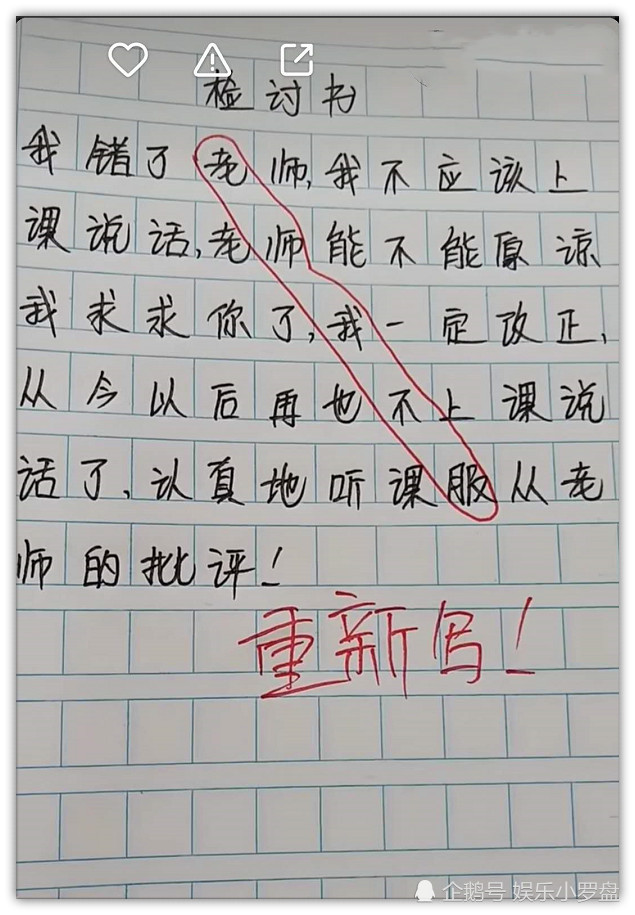 检讨书
我错了老师,我不应该上
课说话,老师能不能原谅
我求求你了,我一定改正,
从今以后再也不上课说
话了、认真地听课服从老
师的批评!
重新写!
企鹅号 娱乐小罗盘